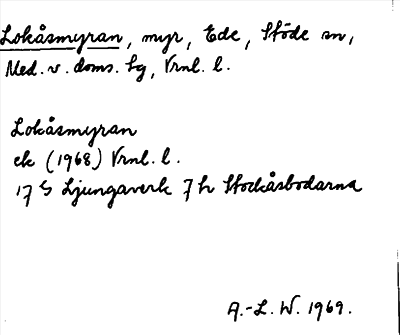 Lokåsmyran, myr, Ede, Stöde sn,
Med. v. doms. tg, Vrnl. l.
Lokåsmyran
ek (1968) Vrnl. l.
17 G Ljungaverk 7 h Stockåsbodarna
A.-L. W. 1969.